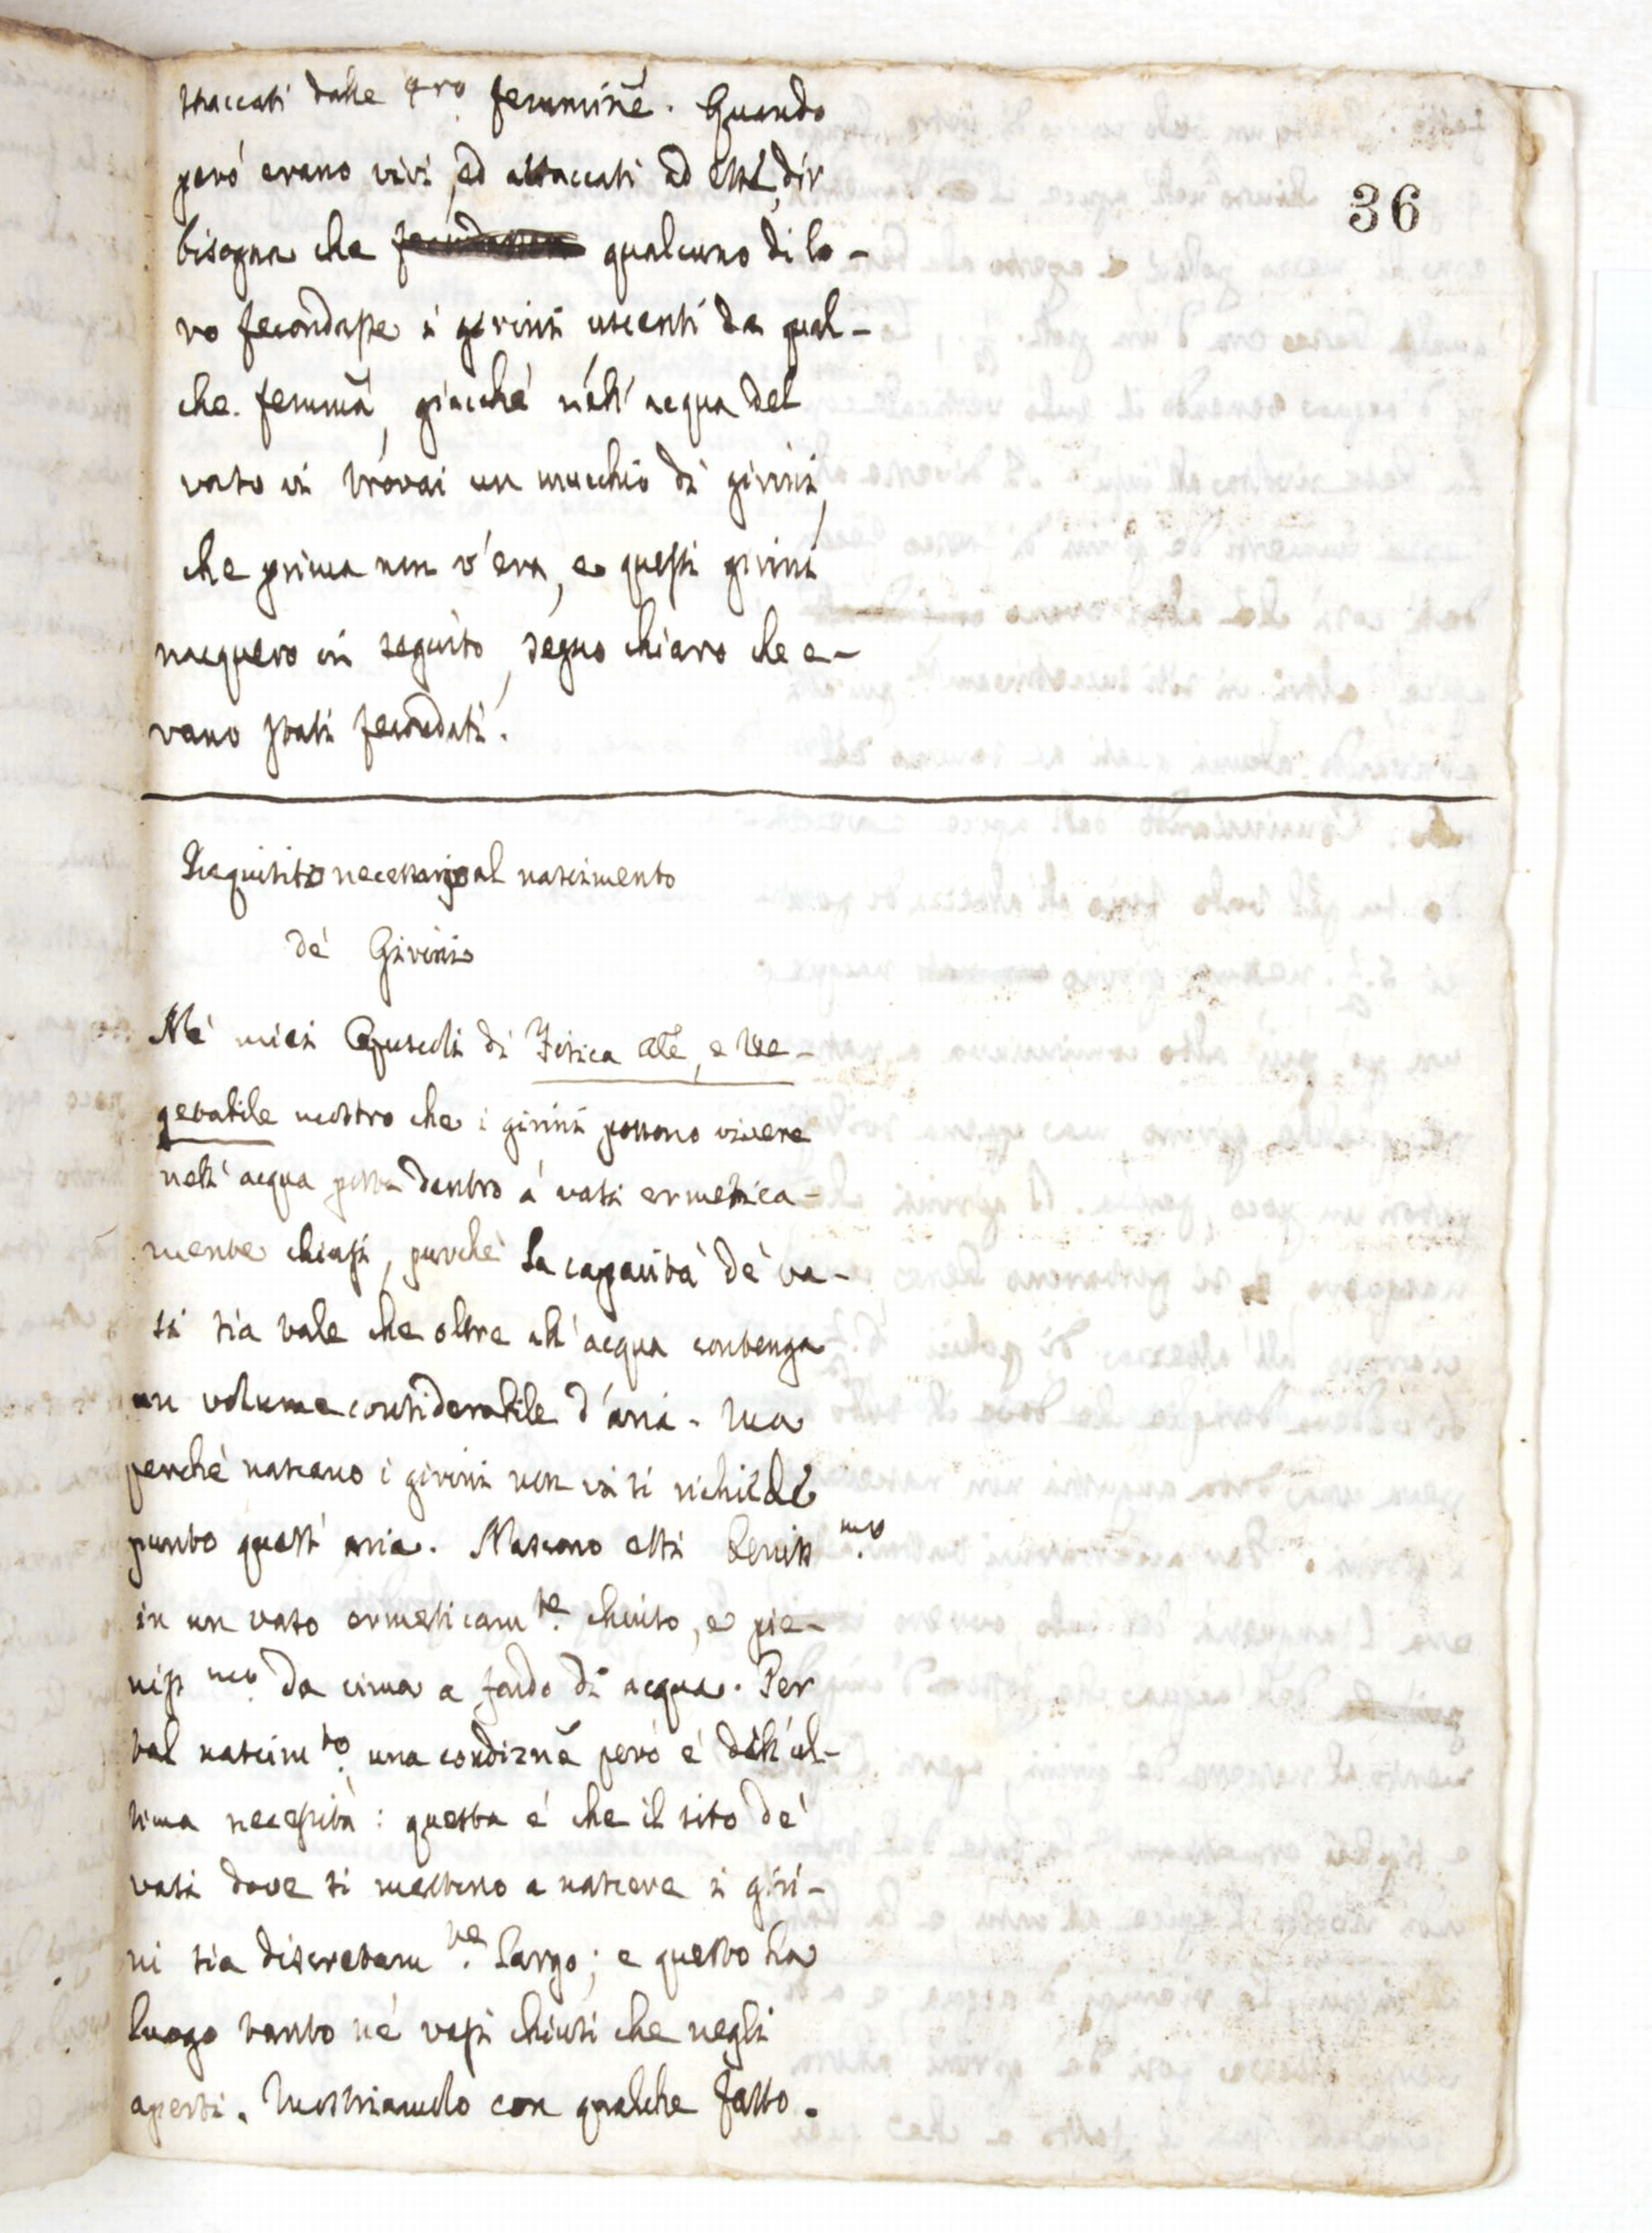 staccati dalle pro femminẽ. Quando
però erano vivi, ed attaccati ad esse, dir
bisogna che qualcuno di lo-
ro fecondasse i girini uscenti da qual-
che. femmã, giacchè nell'acqua del
vaso vi trovai un mucchio di girini,
che prima non v'era, e questi girini
nacquero in seguito, segno chiaro che e-
rano stati fecondati.
Requisito necessario al nascimento
de' Girini
Ne' miei Opuscoli di Fisica Ale, e Ve-
getabile mostro che i girini possono vivere
nell'acqua posta dentro a' vasi ermetica-
mente chiusi, purchè la capacità de' va-
si sia tale che oltre all'acqua contenga
un volume considerabile d'aria. Ma
perchè nascano i girini non vi si richiede
punto quest'aria. Nascono essi beniss.mo
in un vaso ermeticam.te chiuso, e pie-
niss.mo da cima a fondo di acqua. Per
tal nascim.to una condiznẽ però è dell'ul-
tima necessità: questa è che il sito de'
vasi dove si mettono a nascere i giri-
ni sia discretam.te largo; e questo ha
luogo tanto ne' vasi chiusi che negli
aperti. Mostriamolo con qualche fatto.
36